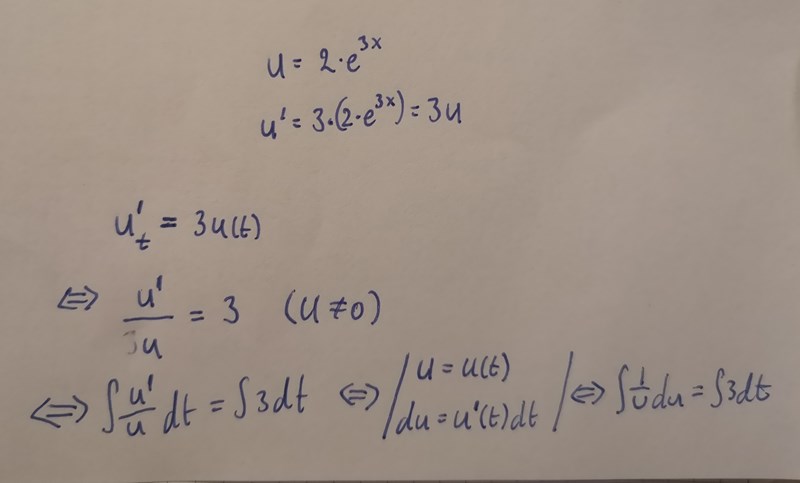 u = 2·e^{3x}
u' = 3·(2·e^{3x}) = 3u
u'_t = 3u(t)
⇔ u'/u = 3 (u ≠ 0)
⇔ ∫ u'/u dt = ∫ 3dt ⇔ / u = u(t) du = u'(t)dt / ⇔ ∫ 1/u du = ∫ 3dt